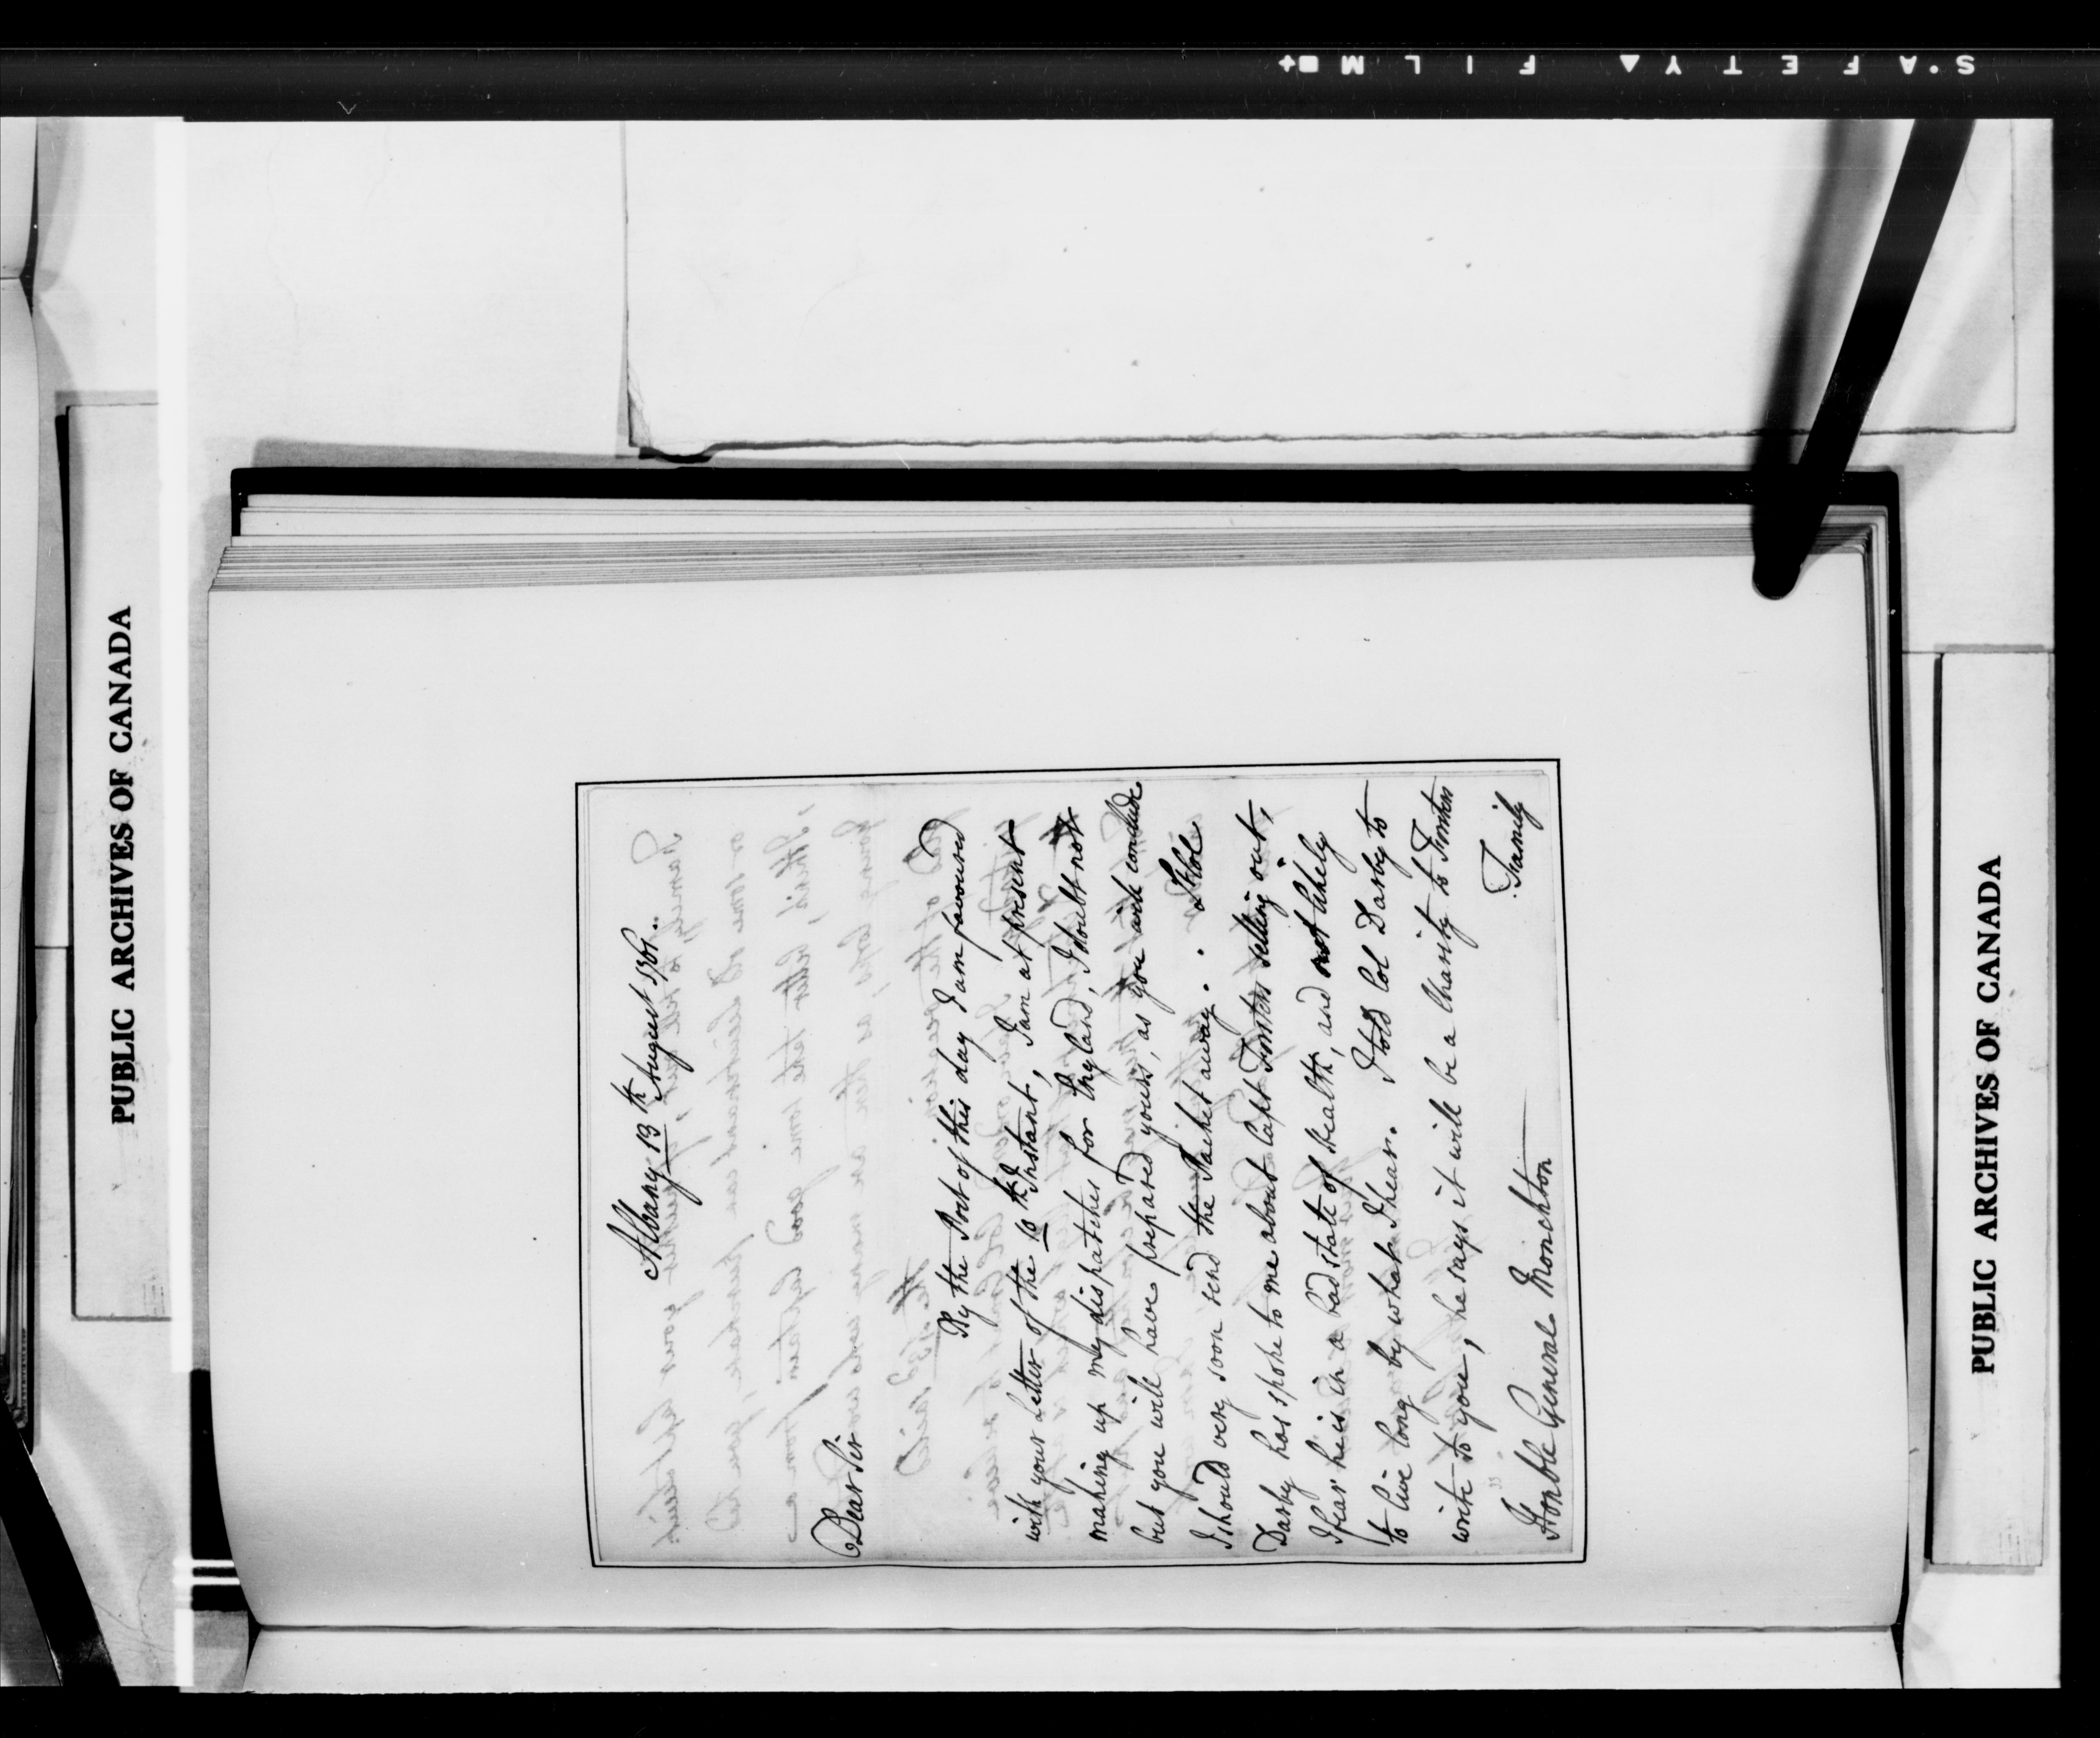 S'AFETY FILM
PUBLIC ARCHIVES OF CANADA
Albany 13th August 1761..
Dear Sir
By the Post of this day I am favoured
with your Letter of the 10th Instant, I am at present
making up my dispatches for England, I doubt not
but you will have prepared yours, as you will conclude
I should very soon send the Packet away.
Darby has spoke to me about Capt Forsters selling out,
I fear he is in a bad state of Health, and not likely
to live long by what I hear. I told Col Darby to
write to you, he says it will be a Charity to Forsters
Family
Honble General Monckton
PUBLIC ARCHIVES OF CANADA